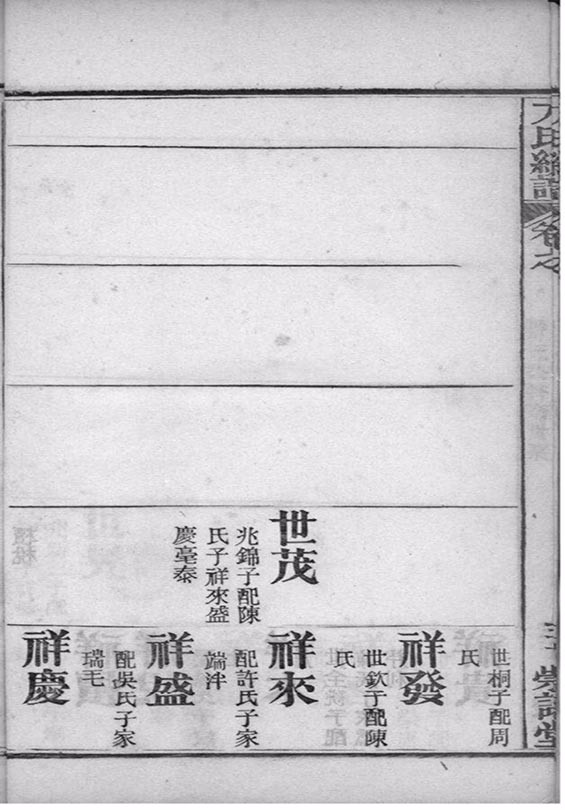 方氏總譜
卷七
世茂
兆錦子配陳
氏子祥來盛
慶臺泰
世桐子配周
氏
祥發
世欽子配陳
氏
祥來
配許氏子家
端泮
祥盛
配吳氏子家
瑞毛
祥慶